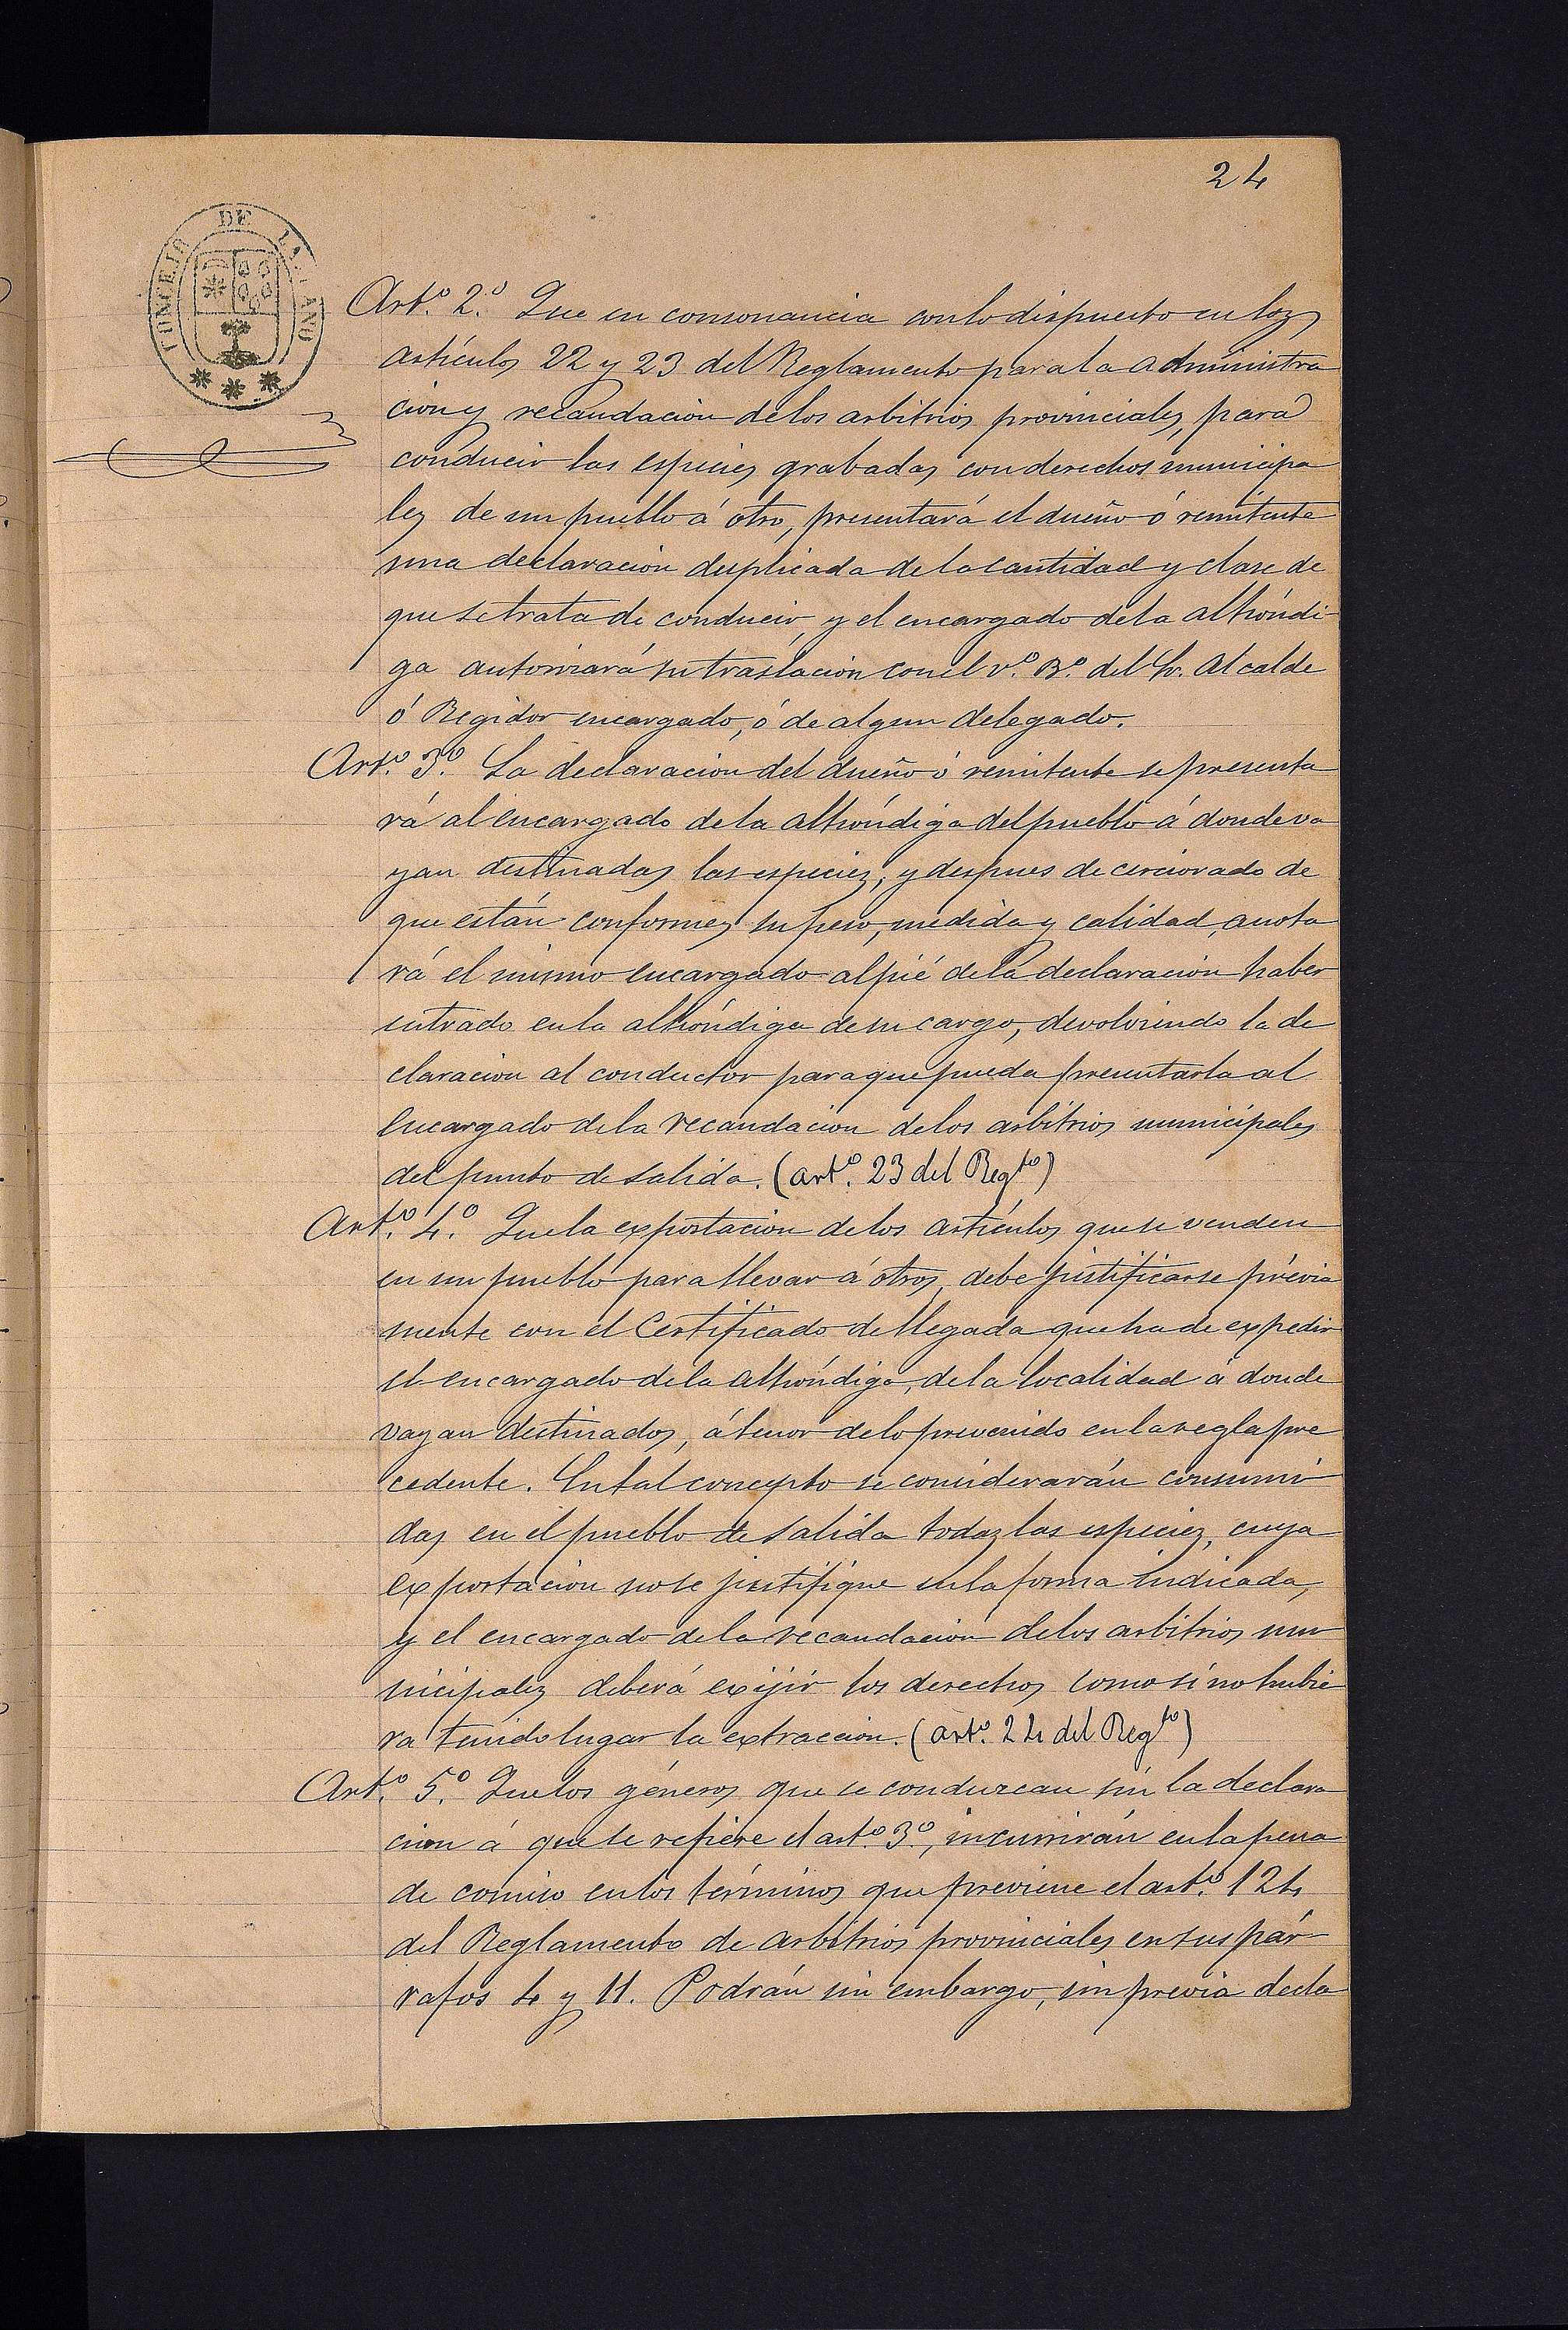 24
CONCEJO DE LA ANO
Artº. 2º. Que en consonancia con lo dispuesto en los
artículos 22 y 23 del Reglamento para la administra
cion y recaudación de los arbitrios provinciales, para
conducir las especies grabadas con derechos municipa
les de un pueblo á otro, presentará el dueño ó remitente
una declaración duplicada de la cantidad y clase de
que se trata de conducir, y el encargado de la alhóndi-
ga autorizará su traslación con el vº. Bº. del Sr. Alcalde
ó Regidor encargado, ó de algun delegado.
Artº. 3º. La declaracion del dueño ó remitente se presenta
rá al encargado de la alhóndiga del pueblo á donde va
yan destinadas las especies, y despues de cerciorado de
que están conformes su peso, medida y calidad, anota
rá el mismo encargado al pié de la declaración haber
entrado en la alhóndiga de su cargo, devolviendo la de
claracion al conductor para que pueda presentarla al
encargado de la recaudacion de los arbitrios municipales
del punto de salida. (artº. 23 del Regto)
Artº. 4º. Que la exportacion de los artículos que se venden
en un pueblo para llevar á otros, debe justificarse prévia
mente con el Certificado de llegada que ha de expedir
el encargado de la alhóndiga, de la localidad á donde
vayan destinados, á tenor de lo prevenido en la regla pre
cedente. En tal concepto se considerarán consumi-
das en el pueblo de salida todas las especies, cuya
exportacion no se justifique en la forma indicada,
y el encargado de la recaudacion de los arbitrios mu
nicipales deberá exijir los derechos como si no hubie
ra tenido lugar la extraccion. (artº. 24 del Regto)
Artº. 5º. Que los géneros que se conduzcan sin la declara
cion á que se refiere el artº. 3º., incurrirán en la pena
de comiso en los términos que previene el artº. 124
del Reglamento de arbitrios provinciales en sus pár-
rafos 4 y 11. Podrán sin embargo, sin previa decla